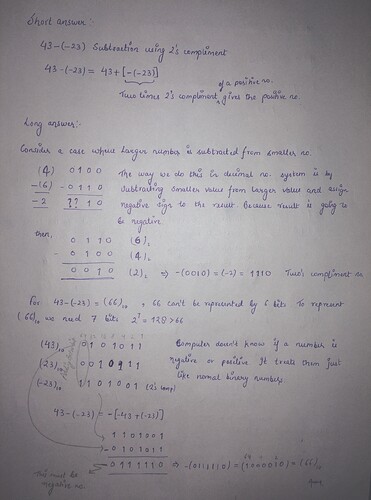 Short answer :-
43-(-23) Subtraction using 2's compliment
43-(-23) = 43+[-(-23)]
of a positive no.
Two times 2's compliment gives the positive no.
Long answer:-
Consider a case where larger number is subtracted from smaller no.
(4) 0100 The way we do this in decimal no. system is by
-(6) -0110 subtracting smaller value from larger value and assign
-2 ??10 negative sign to the result because result is going to
be negative.
then,
0110 (6)
- 0100 (4)
0010 (2) ⇒ -(0010) = (-2) = 1110 Two's compliment no
For 43-(-23) = (66)₁₀, 66 can't be represented by 6 bits. To represent
(66)₁₀ we need 7 bits 2⁷=128>66
(43)₁₀ 0101011 Computer doesn't know if a number is
(23)₁₀ 0010111 negative or positive. It treats them just
(-23)₁₀ 1101001 (2's comp) like normal binary numbers.
43-(-23) = -[-43+(-23)]
1101001
-0101011
0111110 ⇒ -(0111110) = (1000010) = (66)₁₀
This must be
negative no.